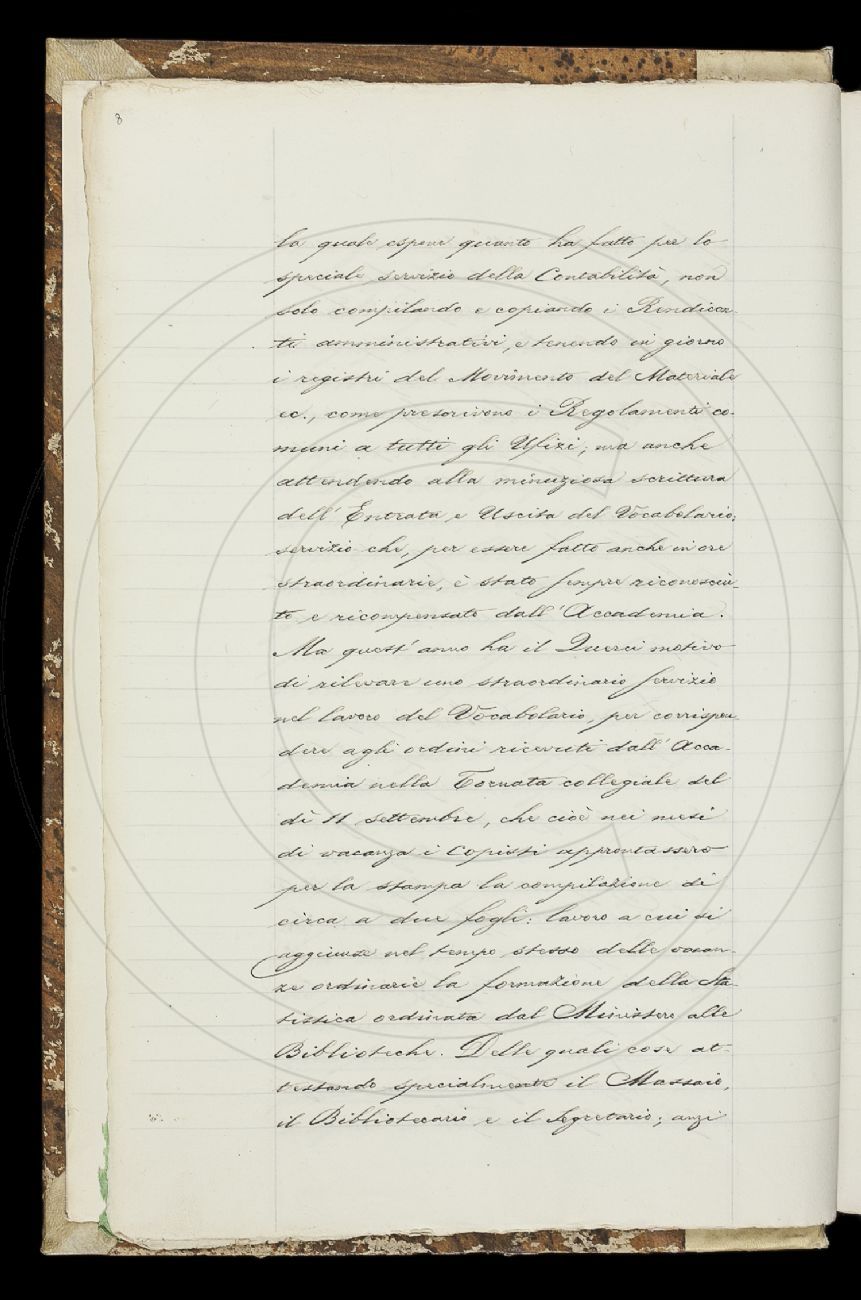 8
la quale espone quanto ha fatto per lo
speciale servizio della Contabilità, non
solo compilando e copiando i Rendicon-
ti amministrativi, e tenendo in giorno
i registri del Movimento del Materiale
ec., come prescrivono i Regolamenti co-
muni a tutti gli Ufizi; ma anche
attendendo alla minuziosa scrittura
dell' Entrata e Uscita del Vocabolario;
servizio che, per essere fatto anche in ore
straordinarie, è stato sempre riconosciu-
to e ricompensato dall' Accademia.
Ma quest' anno ha il Querci motivo
di rilevare uno straordinario servizio
nel lavoro del Vocabolario, per corrispon-
dere agli ordini ricevuti dall' Acca-
demia nella Tornata collegiale del
dì 11 settembre, che cioè nei mesi
di vacanza i Copisti approntassero
per la stampa la compilazione di
circa a due fogli: lavoro a cui si
aggiunse nel tempo stesso delle vacan-
ze ordinarie la formazione della Sta-
tistica ordinata dal Ministero alle
Biblioteche. Delle quali cose at-
testando specialmente il Massaio,
il Bibliotecario e il Segretario; anzi